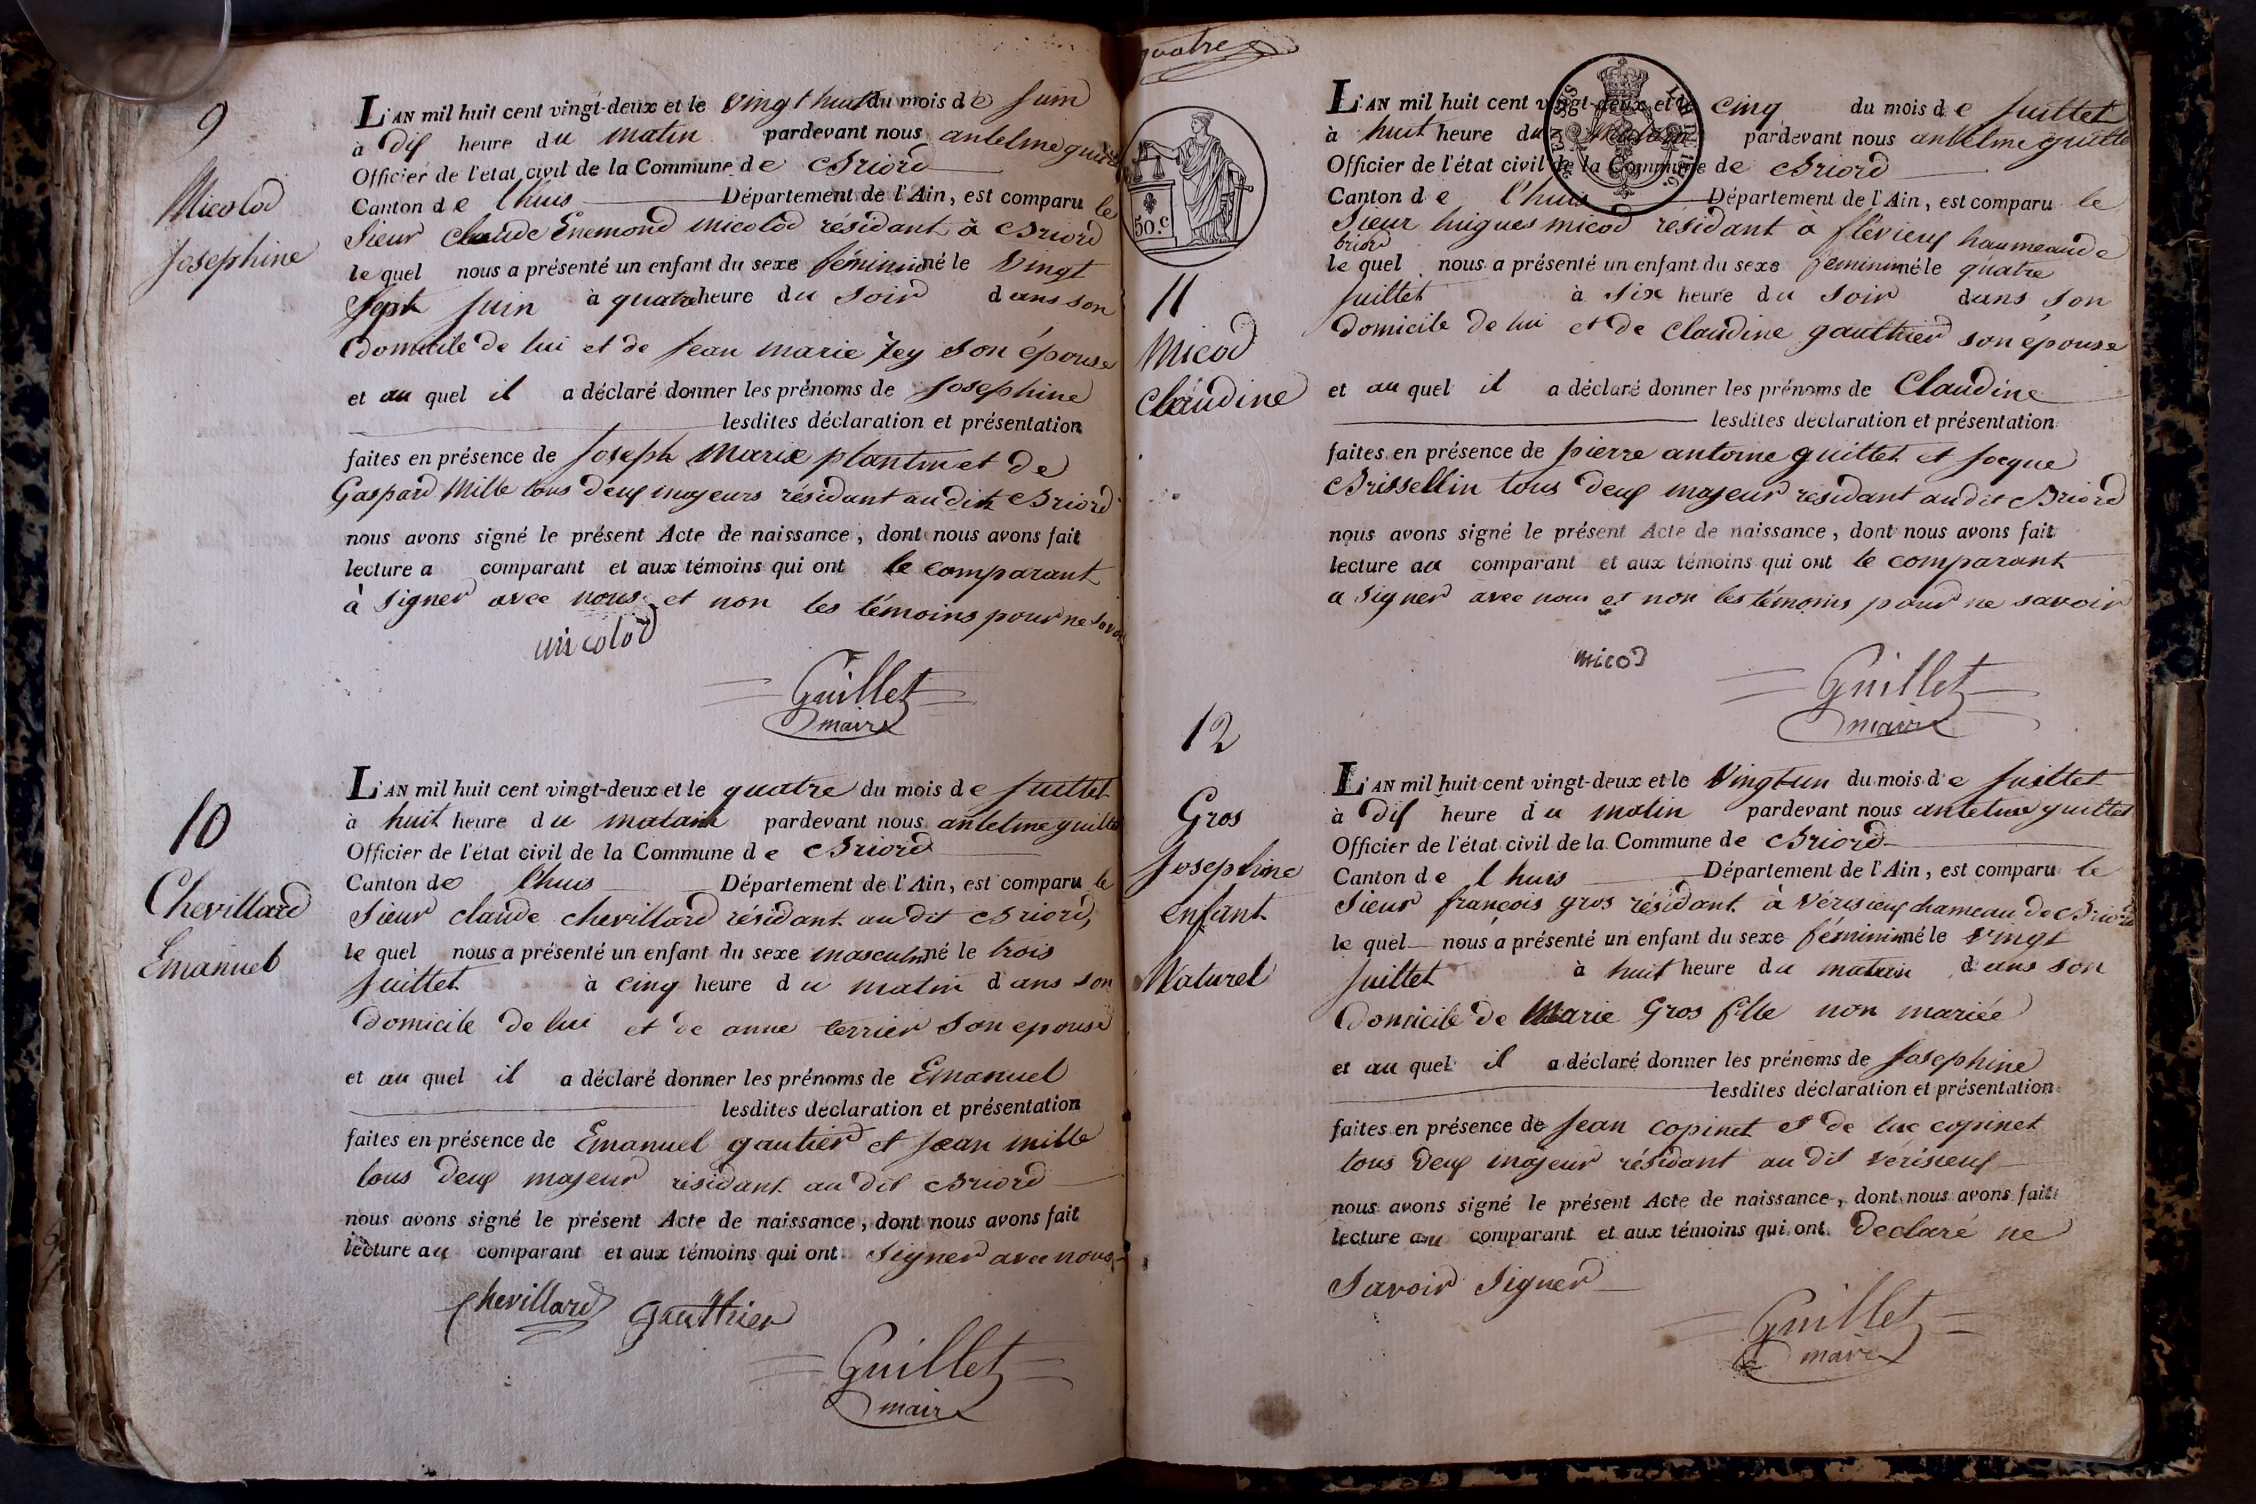 9
Micolod
Josephine
L'AN mil huit cent vingt-deux et le vingt huit du mois de Juin
à dix heure du matin pardevant nous antelme guillet
Officier de l'état civil de la Commune de Briord
Canton de l'huis Département de l'Ain, est comparu le
Sieur claude Enemond micolod résidant à Briord
le quel nous a présenté un enfant du sexe féminin né le vingt
Sept Juin à quatre heure du soir dans son
domicile de lui et de jean marie Rey son épouse
et au quel il a déclaré donner les prénoms de Josephine
lesdites déclaration et présentation
faites en présence de Joseph Marie plantin et de
Gaspard Mille tous deux majeurs résidant audit Briord
nous avons signé le présent Acte de naissance, dont nous avons fait
lecture a comparant et aux témoins qui ont le comparant
à signer avec nous et non les témoins pour ne savoir
micolod
Guillet
maire
10
Chevillard
Emanuel
L'AN mil huit cent vingt-deux et le quatre du mois de Juillet
à huit heure du matain pardevant nous antelme guillet
Officier de l'état civil de la Commune de Briord
Canton de l'huis Département de l'Ain, est comparu le
Sieur claude chevillard résidant au dit Briord,
le quel nous a présenté un enfant du sexe masculin né le trois
Juillet à cinq heure du matin dans son
domicile de lui et de anne terrier son epouse
et au quel il a déclaré donner les prénoms de Emanuel
lesdites déclaration et présentation
faites en présence de Emanuel gautier et Jean mille
tous deux majeur résidant au dit Briord
nous avons signé le présent Acte de naissance, dont nous avons fait
lecture au comparant et aux témoins qui ont signer avec nous
chevillard Gauthier
Guillet
maire
quatre
50. c
11
Micod
Claudine
L'AN mil huit cent vingt-deux et le cinq du mois de Juillet
à huit heure du matain pardevant nous antelme guillet
Officier de l'état civil de la Commune de Briord
Canton de l'huis Département de l'Ain, est comparu le
Sieur hugues micod residant à flévieux haumeaude
briord
le quel nous a présenté un enfant du sexe feminin né le quatre
Juillet à six heure du soir dans son
domicile de lui et de Claudine gauthier son épouse
et au quel il a déclaré donner les prénoms de Claudine
lesdites déclaration et présentation
faites en présence de pierre antoine guillet et Jocque
Brissellin tous deux majeur résidant audit Briord
nous avons signé le présent Acte de naissance, dont nous avons fait
lecture au comparant et aux témoins qui ont le comparant
a signer avec nous et non les témoins pour ne savoir
micod
Guillet
maire
12
Gros
Josephine
enfant
Naturel
L'AN mil huit cent vingt-deux et le Vingt-un du mois de Juillet
à dix heure du matin pardevant nous antelme guillet
Officier de l'état civil de la Commune de Briord
Canton de l'huis Département de l'Ain, est comparu le
Sieur françois gros résidant à vérisieux hameau de Briord
le quel nous a présenté un enfant du sexe féminin né le vingt
Juillet à huit heure du matain dans son
domicile de Marie Gros fille non mariée
et au quel il a déclaré donner les prénoms de Josephine
lesdites déclaration et présentation
faites en présence de Jean copinet et de luc copinet
tous deux majeur résidant au dit vérisieux
nous avons signé le présent Acte de naissance, dont nous avons fait
lecture au comparant et aux témoins qui ont declaré ne
savoir signer
Guillet
maire